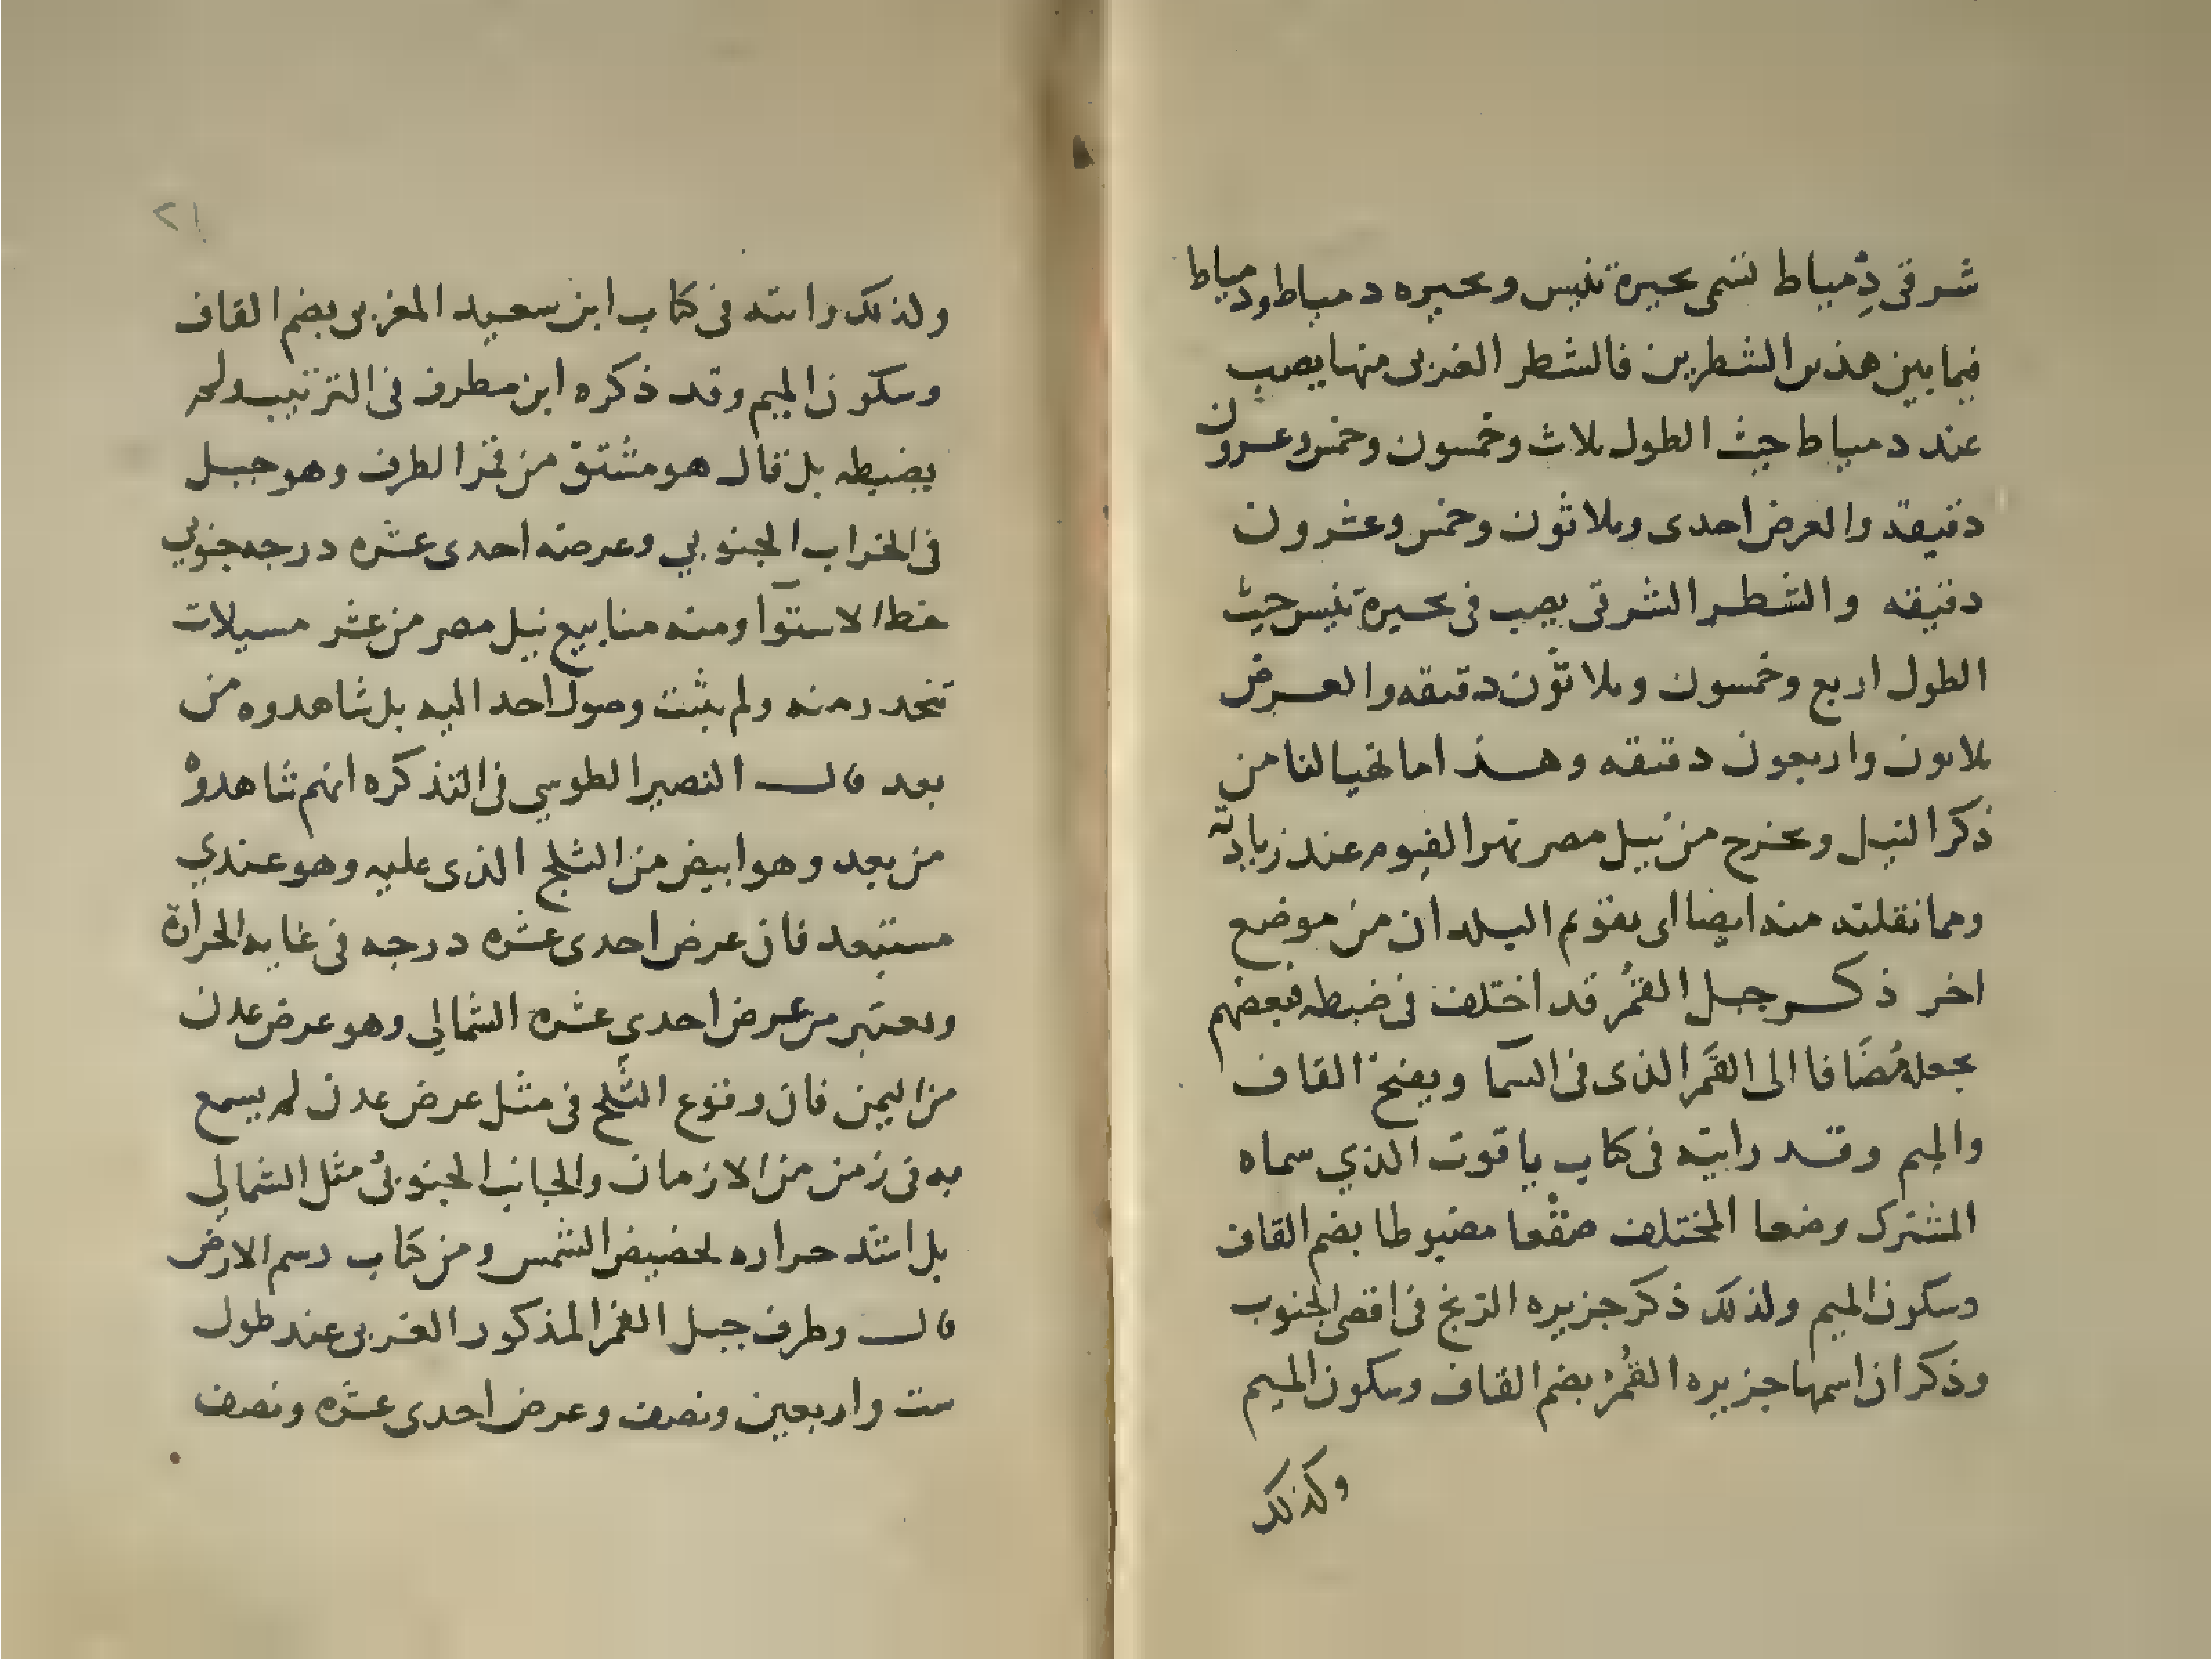 شرقى دِمْياط تسمى بحيرة تنيس وبحيره دمياط ودمياط
فيما بين هذين الشطرين فالشطر الغربى منها يصب
عند دمياط حيث الطول ثلاث وخمسون وخمس وعشرون
دقيقه والعرض احدى وثلاثون وخمس وعشرون
دقيقه والشطر الشرقى يصب فى بحيرة تنيس حيث
الطول اربع وخمسون وثلاثون دقيقه والعرض
ثلاثون واربعون دقيقه وهذا ما تهيا لنا من
ذكر النيل ويخرج من نيل مصر نهر الفيوم عند زيادته
ومما نقلته منه ايضا اى تقويم البلدان من موضع
اخر ذكر جبل القمُر قد اختلف فى ضبطه فبعضهم
يجعله مُضَافا الى القَمَر الذى فى السما ويفتح القاف
والميم وقد رايته فى كتاب ياقوت الذي سماه
المشترك وضعا المختلف صقْعا مضبوطا بضم القاف
وسكون الميم ولذلك ذكر جزيره الزنج فى اقصى الجنوب
وذكر ان اسمها جزيره القُمْر بضم القاف وسكون الميم
وكذلك
٢١
ولذلك رايته فى كتاب ابن سعيد المغربى بضم القاف
وسكون الميم وقد ذكره ابن مطرف فى الترتيب ولم
يضبطه بل قال هو مشتق من قمر الطرف وهو جبل
فى الخراب الجنوبي وعرضه احدى عشره درجه جنوبي
خط الاستوآ ومنه منابيع نيل مصر من عشر مسيلات
تنحدر منه ولم يثبت وصول احد اليه بل شاهدوه من
بعد قال النصير الطوسي فى التذكره انهم شاهدوه
من بعد وهو ابيض من الثلج الذى عليه وهو عندي
مستبعد فان عرض احدى عشره درجه فى غايه الحرارة
ويعتبر من عرض احدي عشره الشمالي وهو عرض عدن
من اليمن فان وقوع الثلج فى مثل عرض عدن لم يسمع
به فى زمن من الازمان والجانب الجنوبى مثل الشمالي
بل اشد حراره لحضيض الشمس ومن كتاب رسم الارض
قال وطرف جبل القمر المذكور الغربى عند طول
ست واربعين ونصف وعرض احدى عشره ونصف